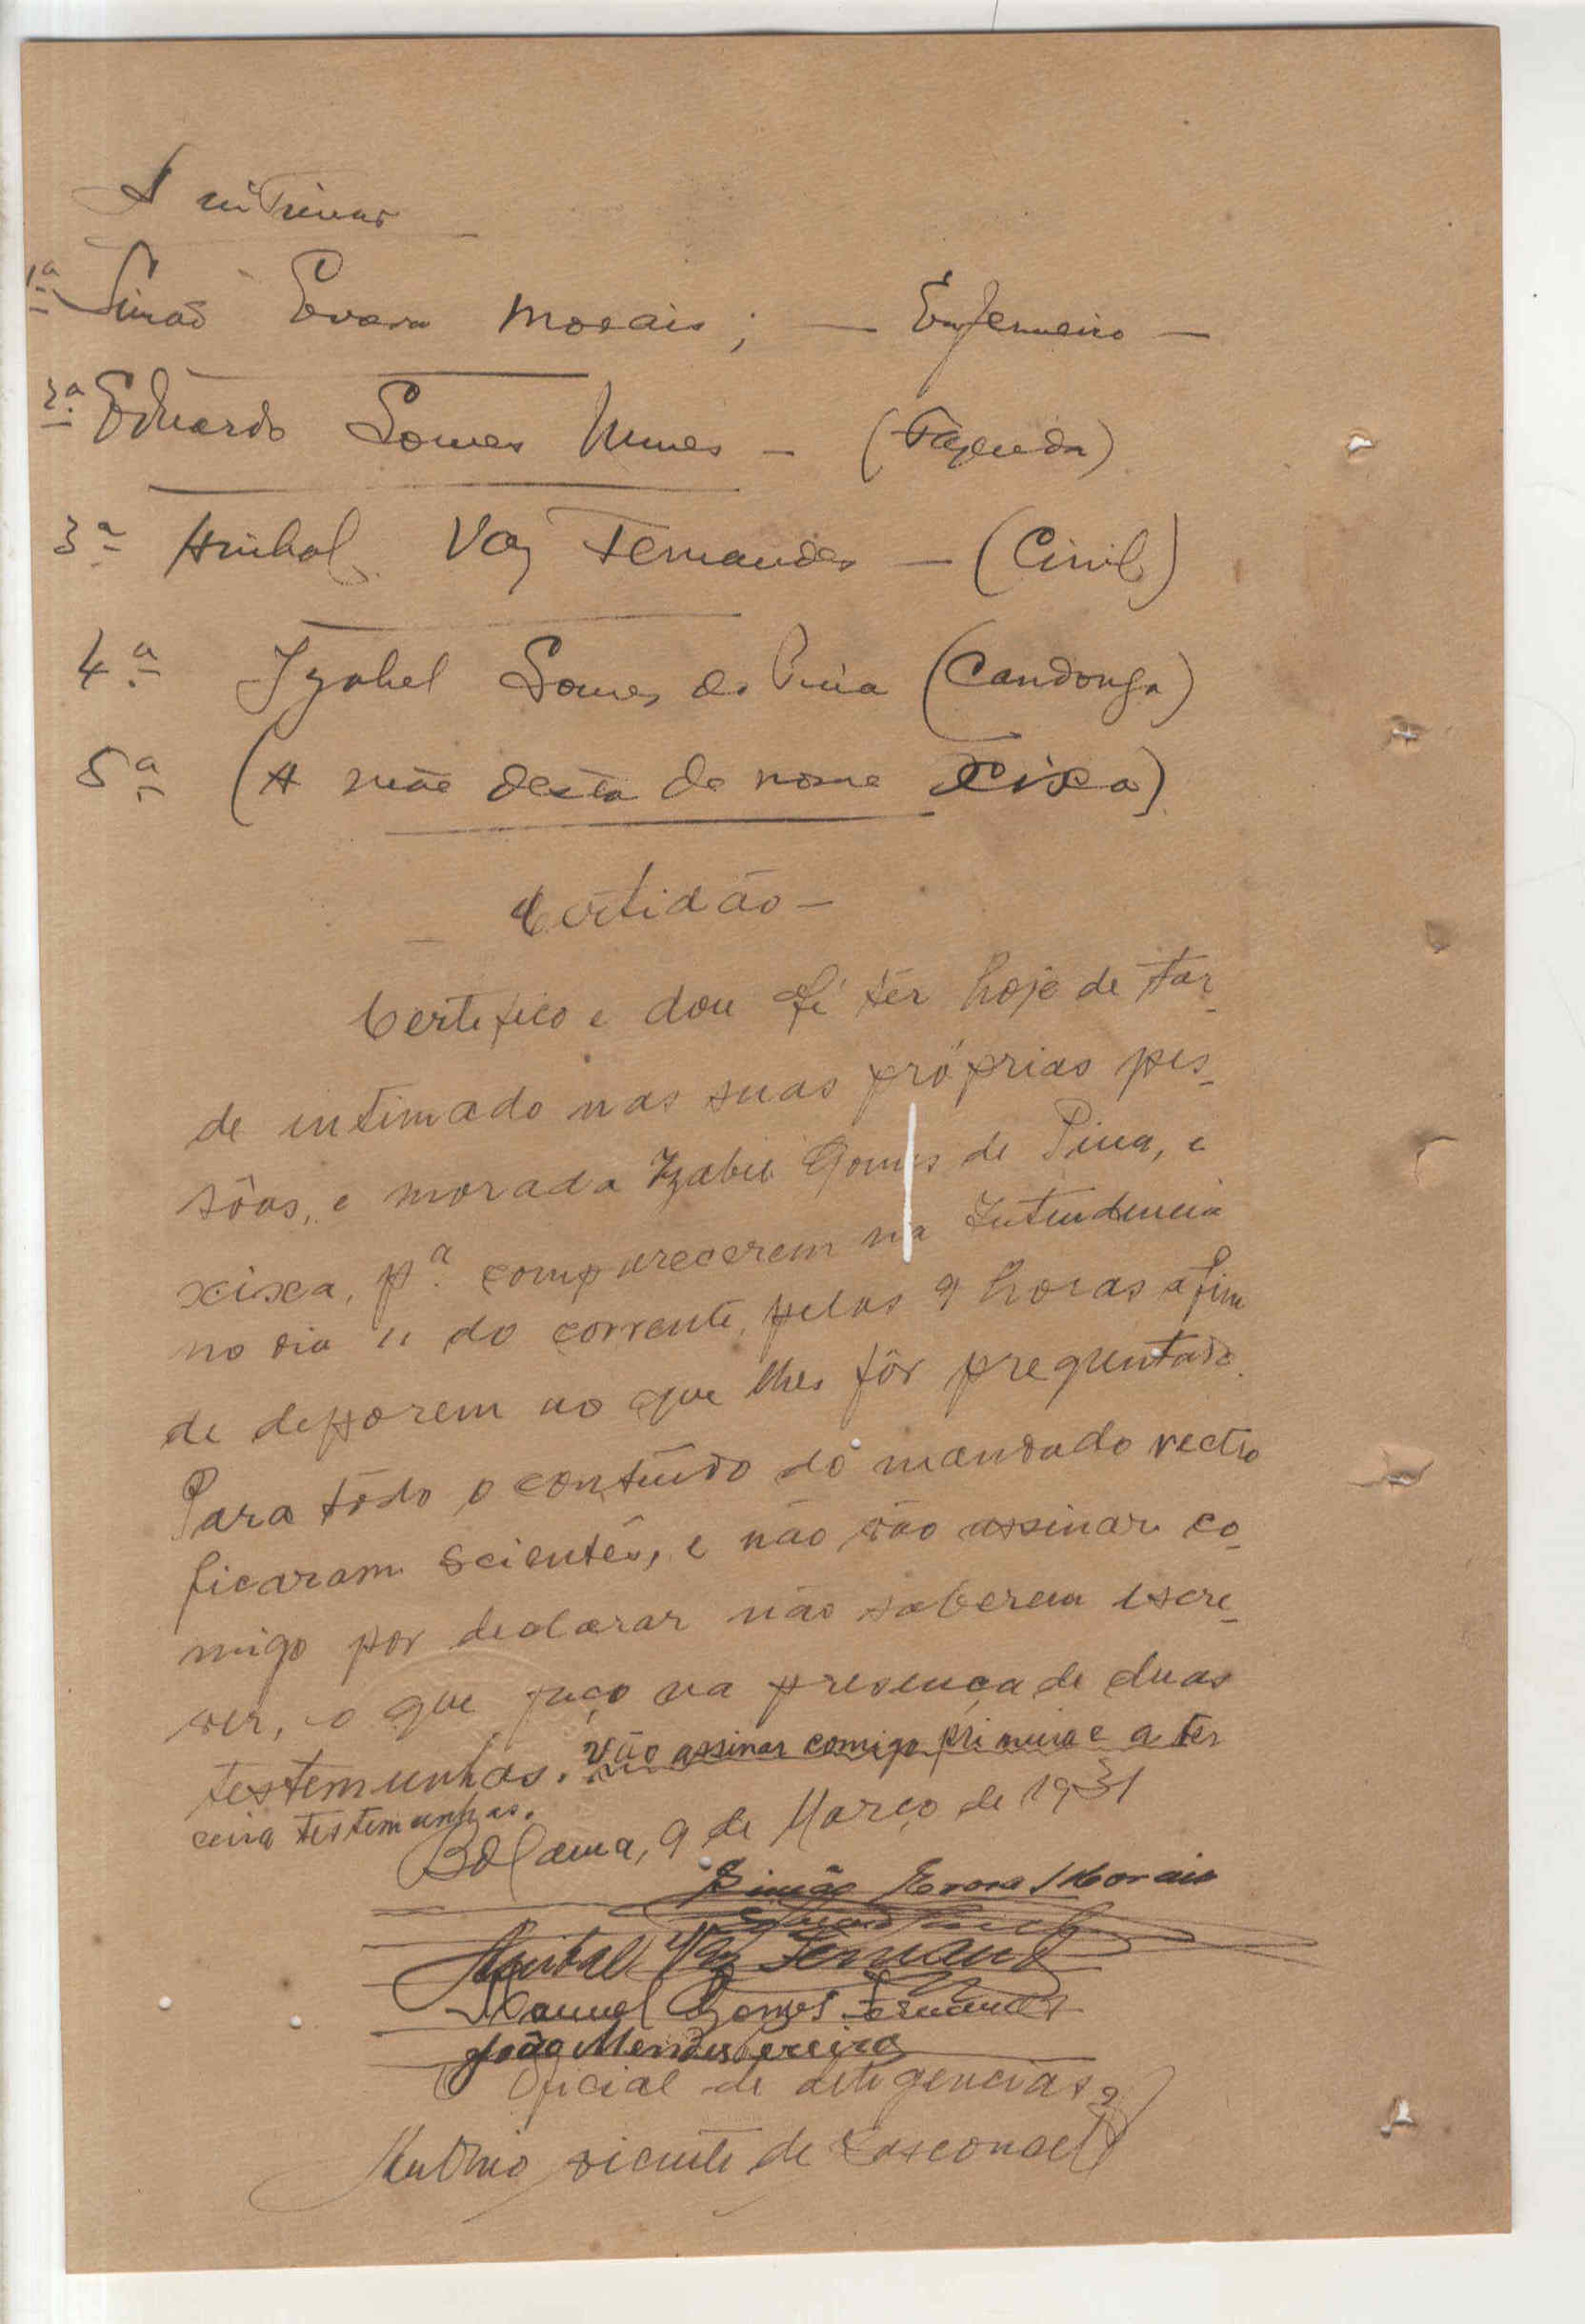 A intimar
1ª Simão Evora Morais; — Enfermeiro —
2ª Eduardo Gomes Nunes — (Fazenda)
3ª Anibal Vaz Fernandes — (Civil)
4ª Izabel Gomes de Pina (Candonga)
5ª (A mãe desta de nome Xixa)
Certidão —
Certifico e dou fé têr hoje de tar-
de intimado nas suas próprias pes-
sôas, e morada Izabel Gomes de Pina, e
xixa, pª. comparecerem na Intendencia
no dia 11 do corrente, pelas 9 horas afim
de deporem ao que lhes fôr preguntado.
Para tôdo o contúido do mandado rectro
ficaram scientes, e não vão assinar co-
migo por declarar não saberem escre-
ver, o que faço na presença de duas
testemunhas. Vão assinar comigo primeira e a ter
ceira testemunhas.
Bolama, 9 de Março de 1931
Simão Evora Morais
Anibal Vaz Fernand
Manuel Gomes Fernandes
João Mendes Pereira
O Oficial de deligencias,
António vicente de Vasconcel